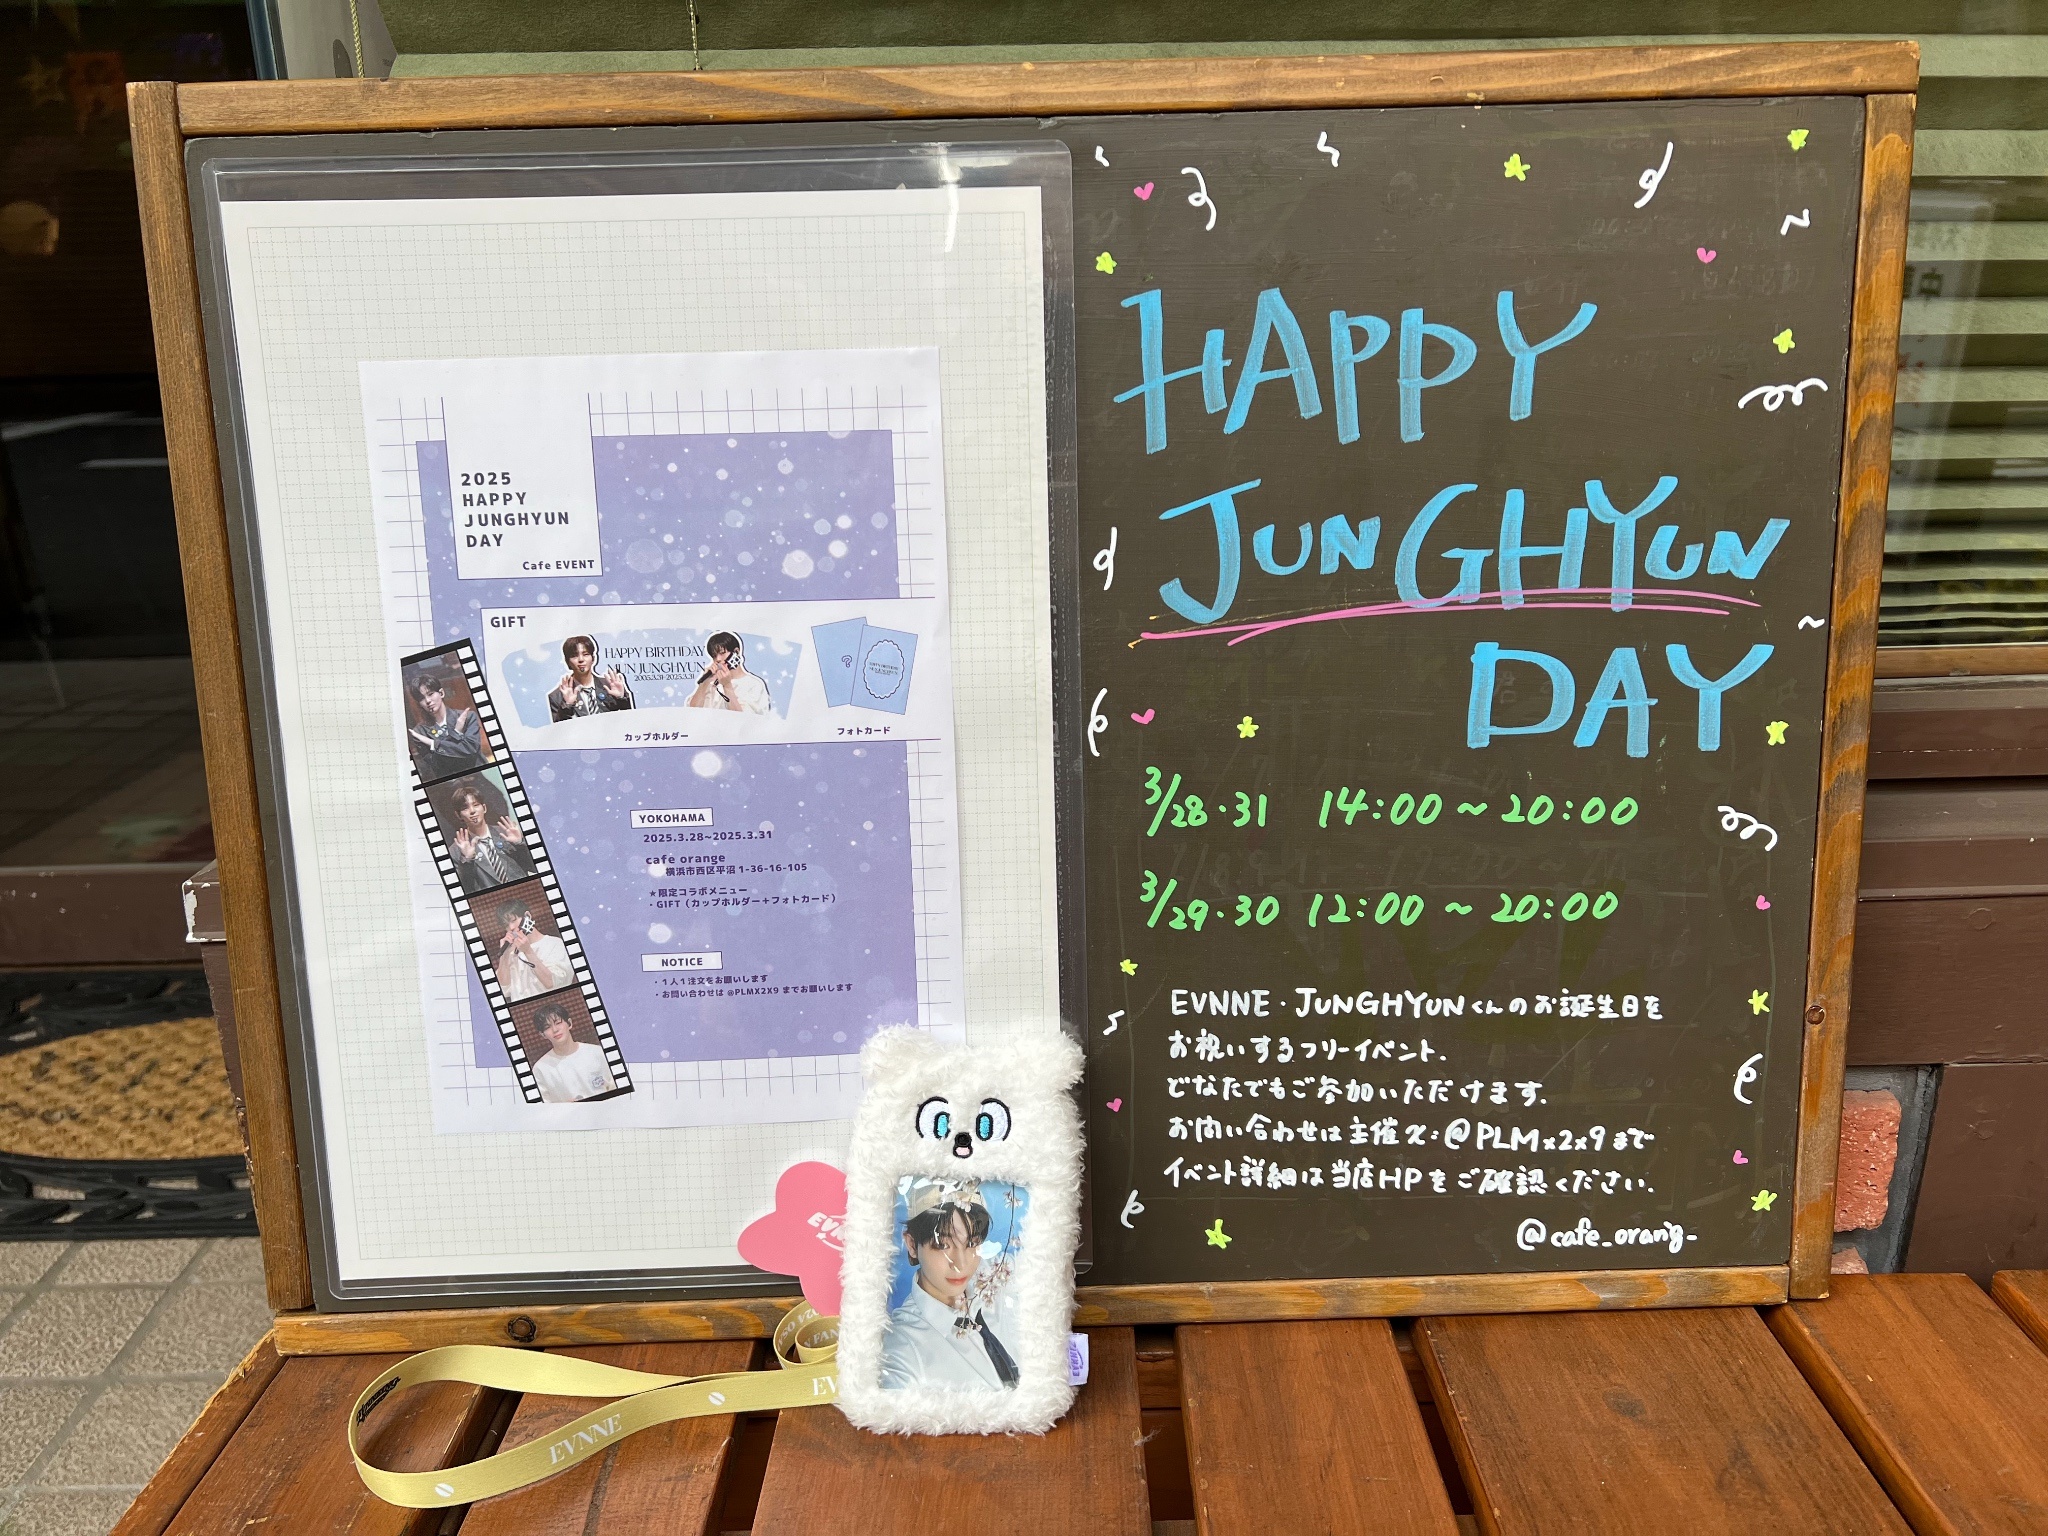 2025
HAPPY
JUNGHYUN
DAY
Cafe EVENT
GIFT
HAPPY BIRTHDAY
MUN JUNGHYUN
2005.3.31-2025.3.31
?
カップホルダー
フォトカード
YOKOHAMA
2025.3.28~2025.3.31
cafe orange
横浜市西区平沼1-36-16-105
★限定コラボメニュー
・GIFT（カップホルダー＋フォトカード）
NOTICE
・1人1注文をお願いします
・お問い合わせは @PLMX2X9 までお願いします
HAPPY
JUNGHYUN
DAY
3/28・31 14:00~20:00
3/29・30 12:00~20:00
EVNNE・JUNGHYUNくんのお誕生日を
お祝いするフリーイベント.
どなたでもご参加いただけます.
お問い合わせは主催X:@PLMx2x9まで
イベント詳細は当店HPをご確認ください.
@cafe_orang_
EVNNE